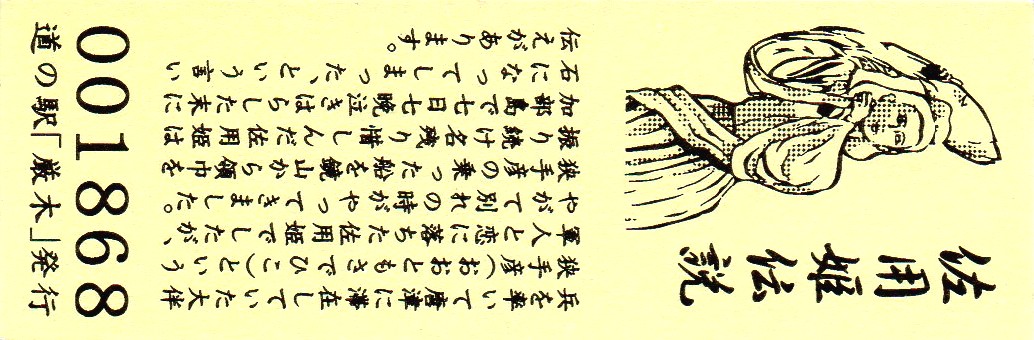 佐用姫伝説
兵を率いて唐津に滞在していた大伴
狭手彦（おおともさでひこ）という
軍人と恋に落ちた佐用姫でしたが、
やがて別れの時がやってきました。
狭手彦の乗った船を鏡山から領巾を
振り続け名残り惜しんだ佐用姫は
加部島で七日七晩泣きはらした末に
石になってしまった、という言い
伝えがあります。
001868
道の駅「厳木」発行